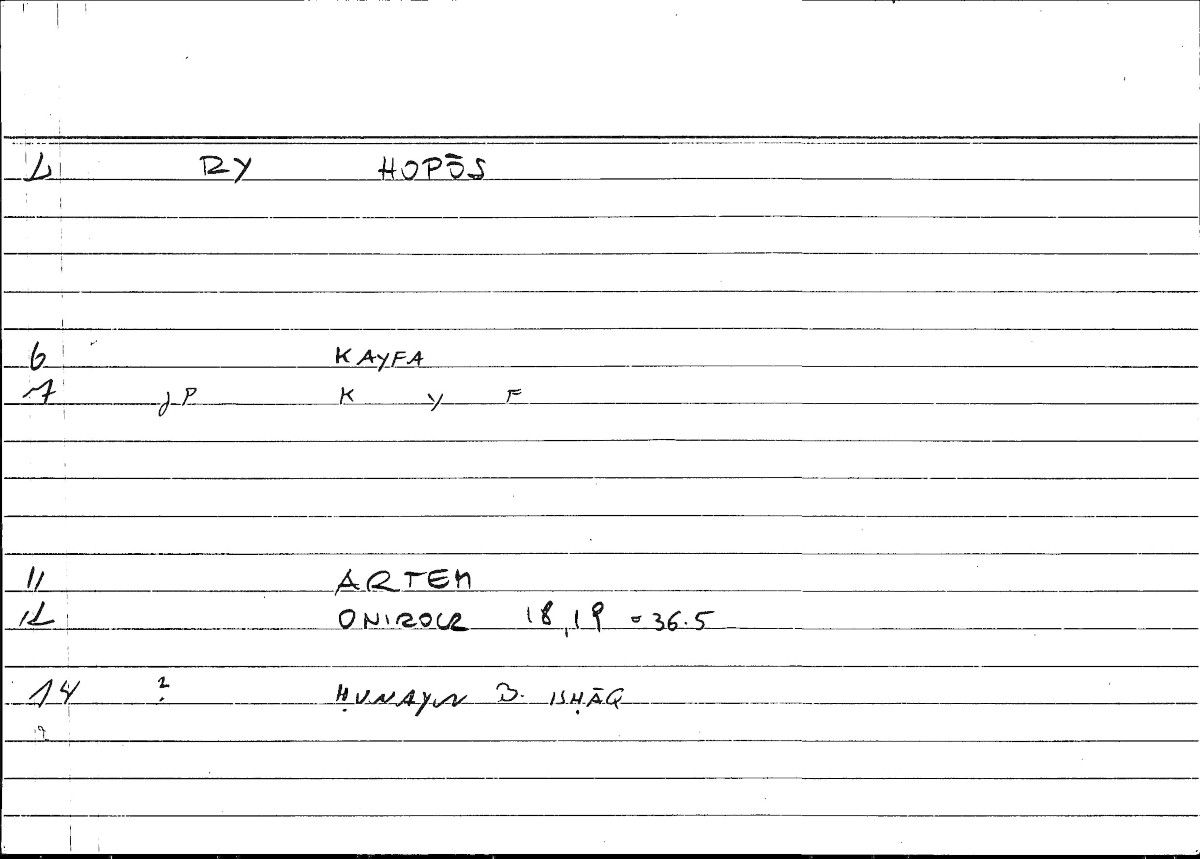 2 RY HOPŌS
6 KAYFA
7 JP K Y F
11 ARTEM
12 ONIROCR 18,19 = 36.5
14 ? ḤUNAYN B. ISḤĀQ